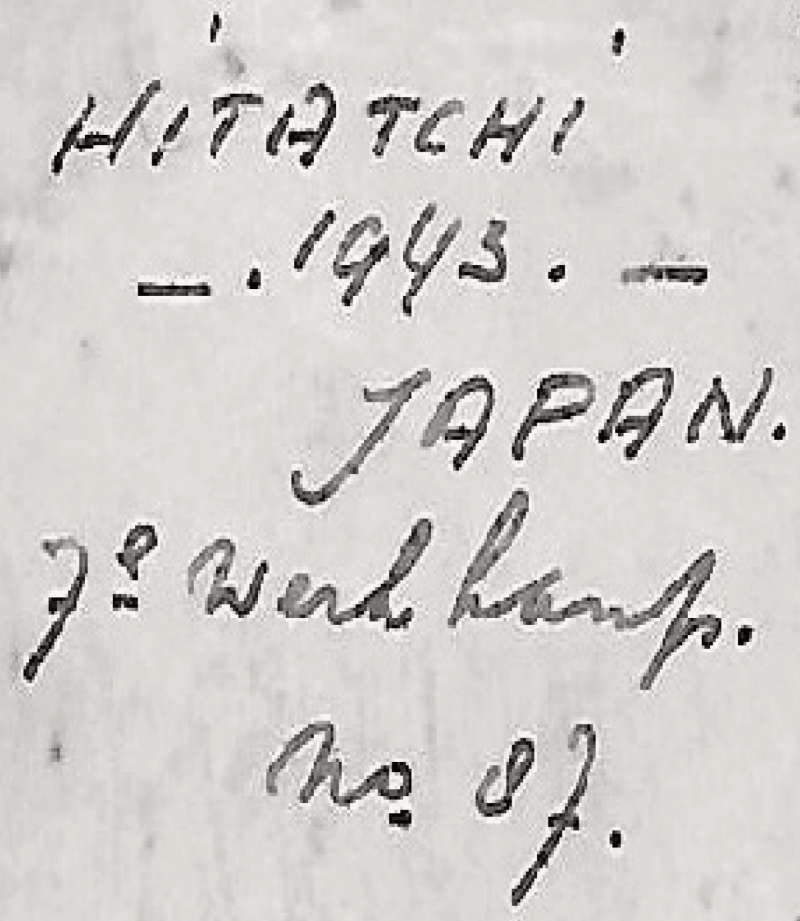 HITATCHI
—. 1943. —
JAPAN.
7e Werkkamp.
No 87.